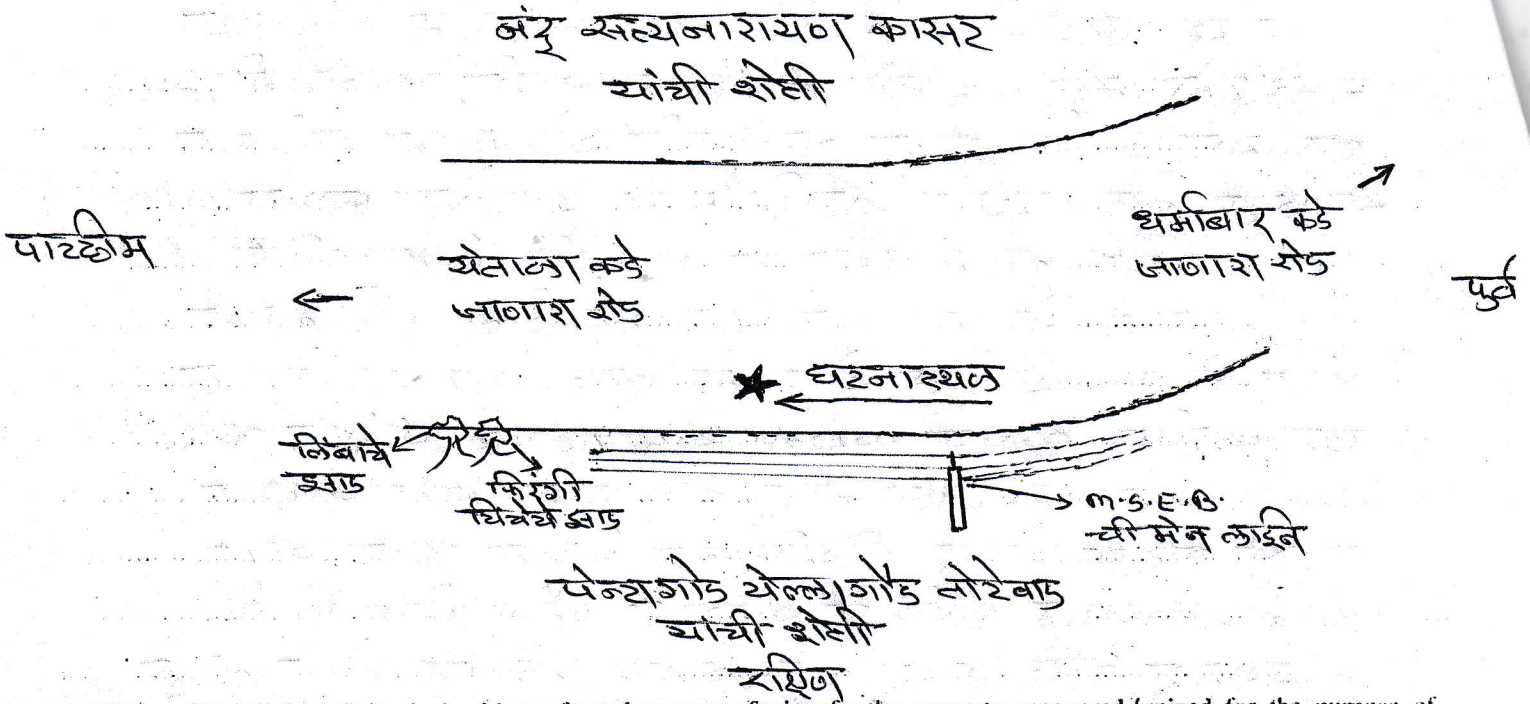 बंदु सत्यनारायण कासट
यांची शेती
पाश्चीम
येताळा कडे
जाणारा रोड
धर्माबाद कडे
जाणारा रोड
पुर्व
घटनास्थळ
लिंबाचे
झाड
फिरंगी
चिंचेचे झाड
M.S.E.B.
ची मेन लाईन
पेन्टागौड येल्लागौड तोटेवाड
यांची शेती
दक्षिण
for the purpose of